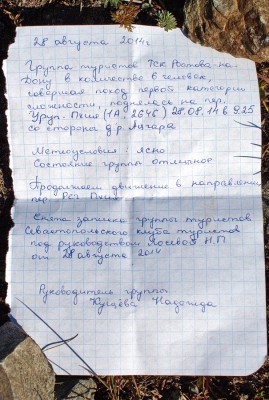 28 августа 2014г
Группа туристов ТСК Ростова-на-
Дону в количестве 6 человек,
совершая поход первой категории
сложности, поднялась на пер.
Уруп. Пхия (1А-2646) 28.08.14 в 9.25
со стороны д.р.
Метеоусловия: Ясно
Состояние группы отличное
Продолжаем движение в направлении
пер.
Снята записка группы туристов
Севастопольского клуба туристов
под руководством Лосевой Н.П
от 28 августа 2014
Руководитель группы
Надежда